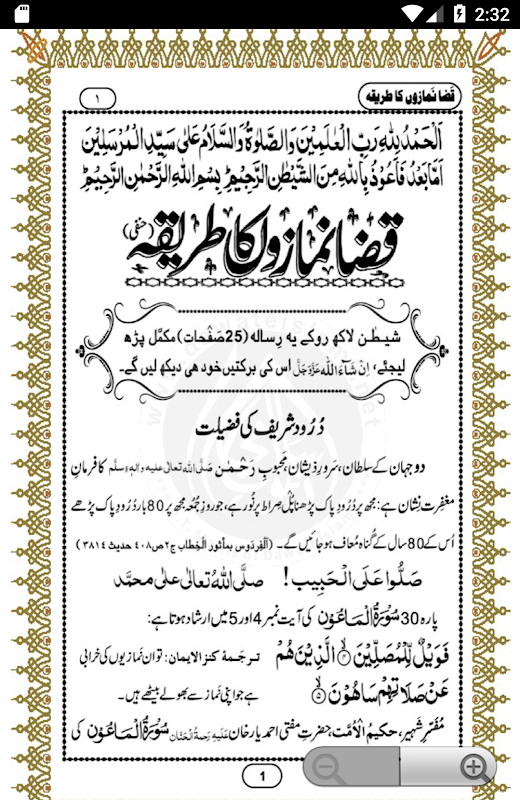 2:32
قَضا نَمازوں کا طریقہ
۱
اَلْحَمْدُ لِلّٰهِ رَبِّ الْعٰلَمِیْنَ وَالصَّلٰوةُ وَالسَّلَامُ عَلٰی سَیِّدِ الْمُرْسَلِیْنَ
اَمَّا بَعْدُ فَاَعُوْذُ بِاللّٰهِ مِنَ الشَّیْطٰنِ الرَّجِیْمِ بِسْمِ اللّٰهِ الرَّحْمٰنِ الرَّحِیْمِ
قضا نمازوں کا طریقہ (حنفی)
شیطٰن لاکھ روکے یہ رِسالہ (25 صَفْحات) مکمَّل پڑھ
لیجئے، اِنْ شَآءَاللّٰه عَزَّوَجَلَّ اس کی برکتیں خود ھی دیکھ لیں گے۔
دُرُود شریف کی فضیلت
دو جہان کے سلطان، سَروَرِ ذیشان، مَحبوبِ رَحْمٰن صَلَّی اللہ تعالٰی علیہ واٰلہٖ وسلَّم کا فرمانِ
مغفِرت نِشان ہے: مجھ پر دُرُودِ پاک پڑھنا پُلْ صِراط پر نُور ہے، جو روزِ جُمُعہ مجھ پر 80 بار دُرُودِ پاک پڑھے
اُس کے 80 سال کے گُناہ مُعاف ہو جائیں گے۔ (اَلْفِردَوس بمأثور الْخِطاب ج۲ ص۴۰۸ حدیث ۳۸۱۴)
صَلُّوا عَلَی الْحَبِیب! صلَّی اللّٰهُ تعالٰی علٰی محمَّد
پارہ 30 سُوْرَةُ الْمَاعُوْن کی آیت نمبر 4 اور 5 میں ارشاد ہوتا ہے:
فَوَیْلٌ لِّلْمُصَلِّیْنَ ۙ﴿۴﴾ الَّذِیْنَ هُمْ ترجَمۂ کنز الایمان: تو ان نَمازیوں کی خرابی
عَنْ صَلَاتِهِمْ سَاهُوْنَ ۙ﴿۵﴾ ہے جو اپنی نَماز سے بھولے بیٹھے ہیں۔
مُفَسّرِ شہیر، حکیمُ الْاُمَّت، حضرتِ مفتی احمد یار خان عَلَیْہِ رَحمۃُ الْحَنَّان سُوْرَةُ الْمَاعُوْن کی
1